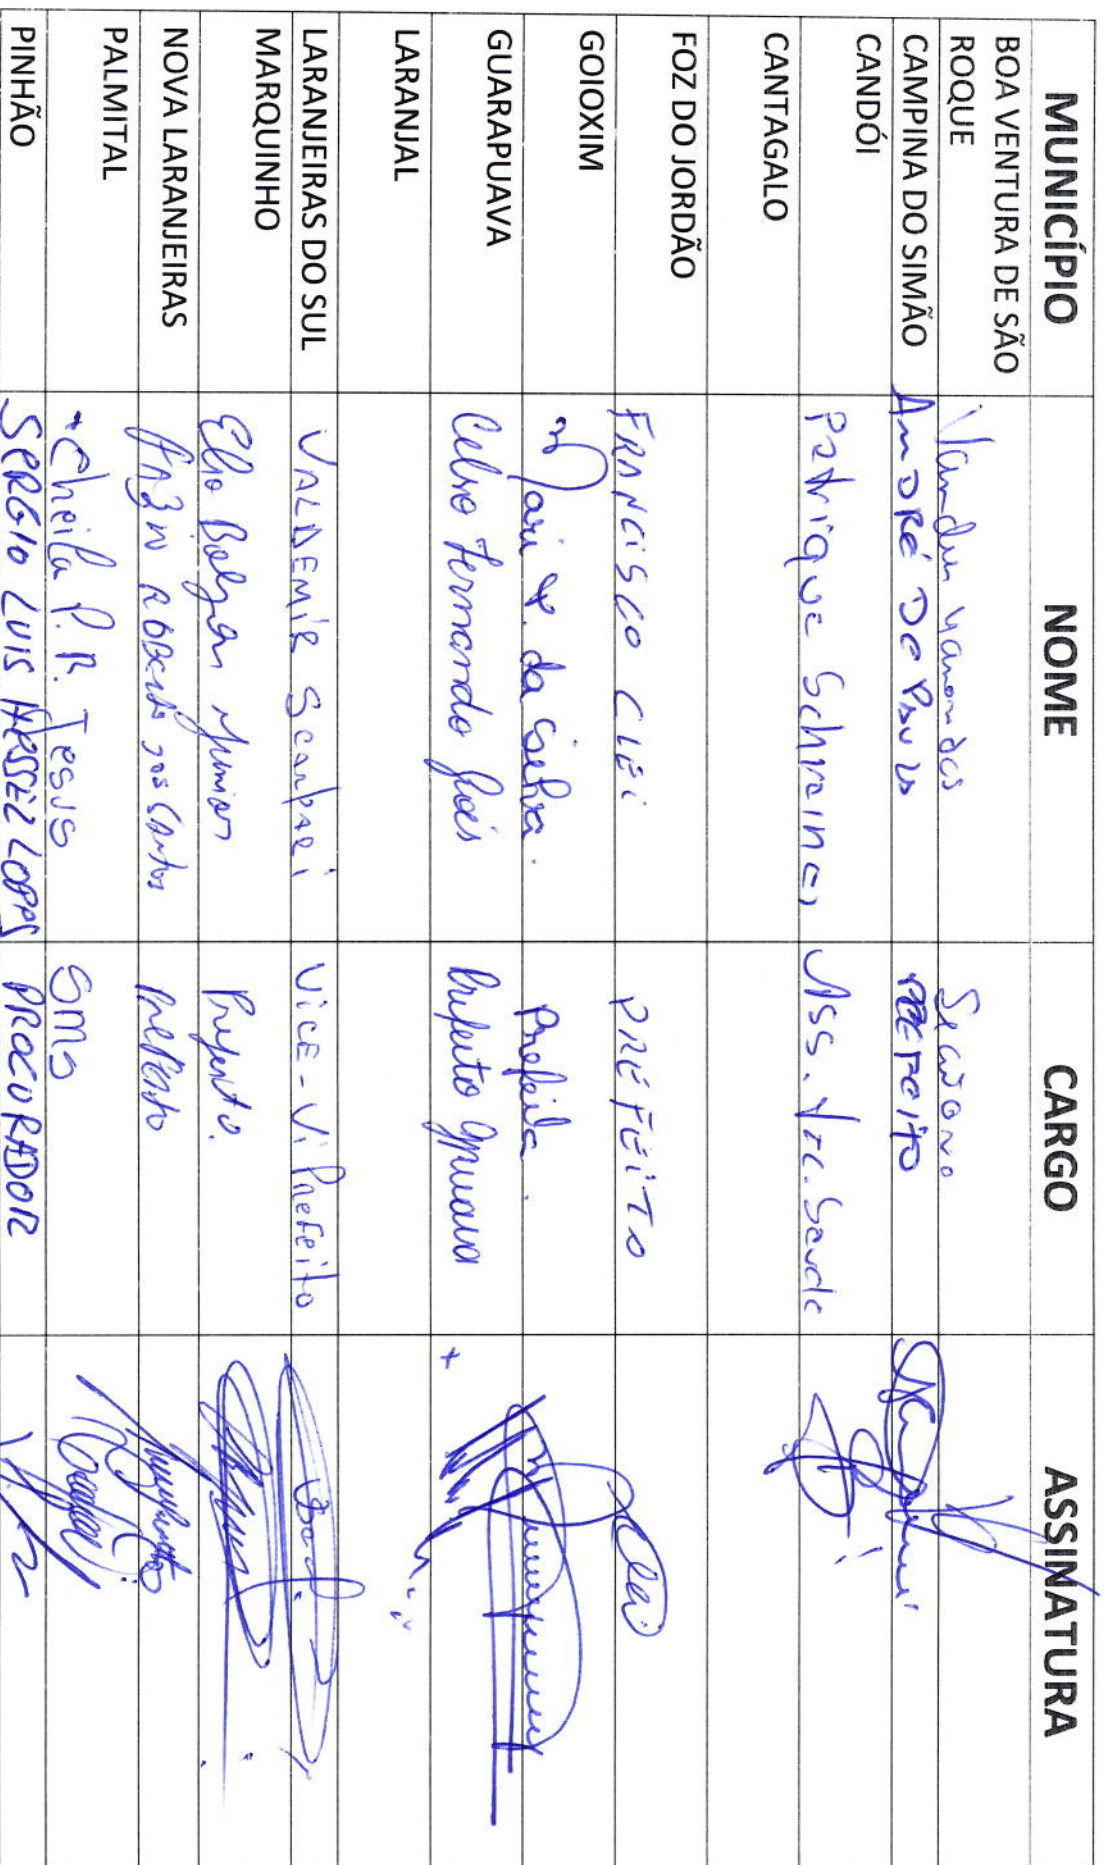 MUNICÍPIO NOME CARGO ASSINATURA
BOA VENTURA DE SÃO
ROQUE
CAMPINA DO SIMÃO AnDRé De Paula PREFEITO
CANDÓI Patrique Schreiner Ass. Saude
CANTAGALO
FOZ DO JORDÃO FRANCISCO CLÉi PREFEITO
GOIOXIM Mari da Silva. Prefeita.
GUARAPUAVA Celso Fernando Goes Prefeito
LARANJAL
LARANJEIRAS DO SUL VALDEMIR Scarpari Vice-ViPrefeito
MARQUINHO Elio Bolzon Junior Prefeito.
NOVA LARANJEIRAS FABIO ROBERTO dos Santos Prefeito
PALMITAL Cheila P. R. Jesus SMS
PINHÃO SERGIO LUIS HESSEL LOPES PROCURADOR